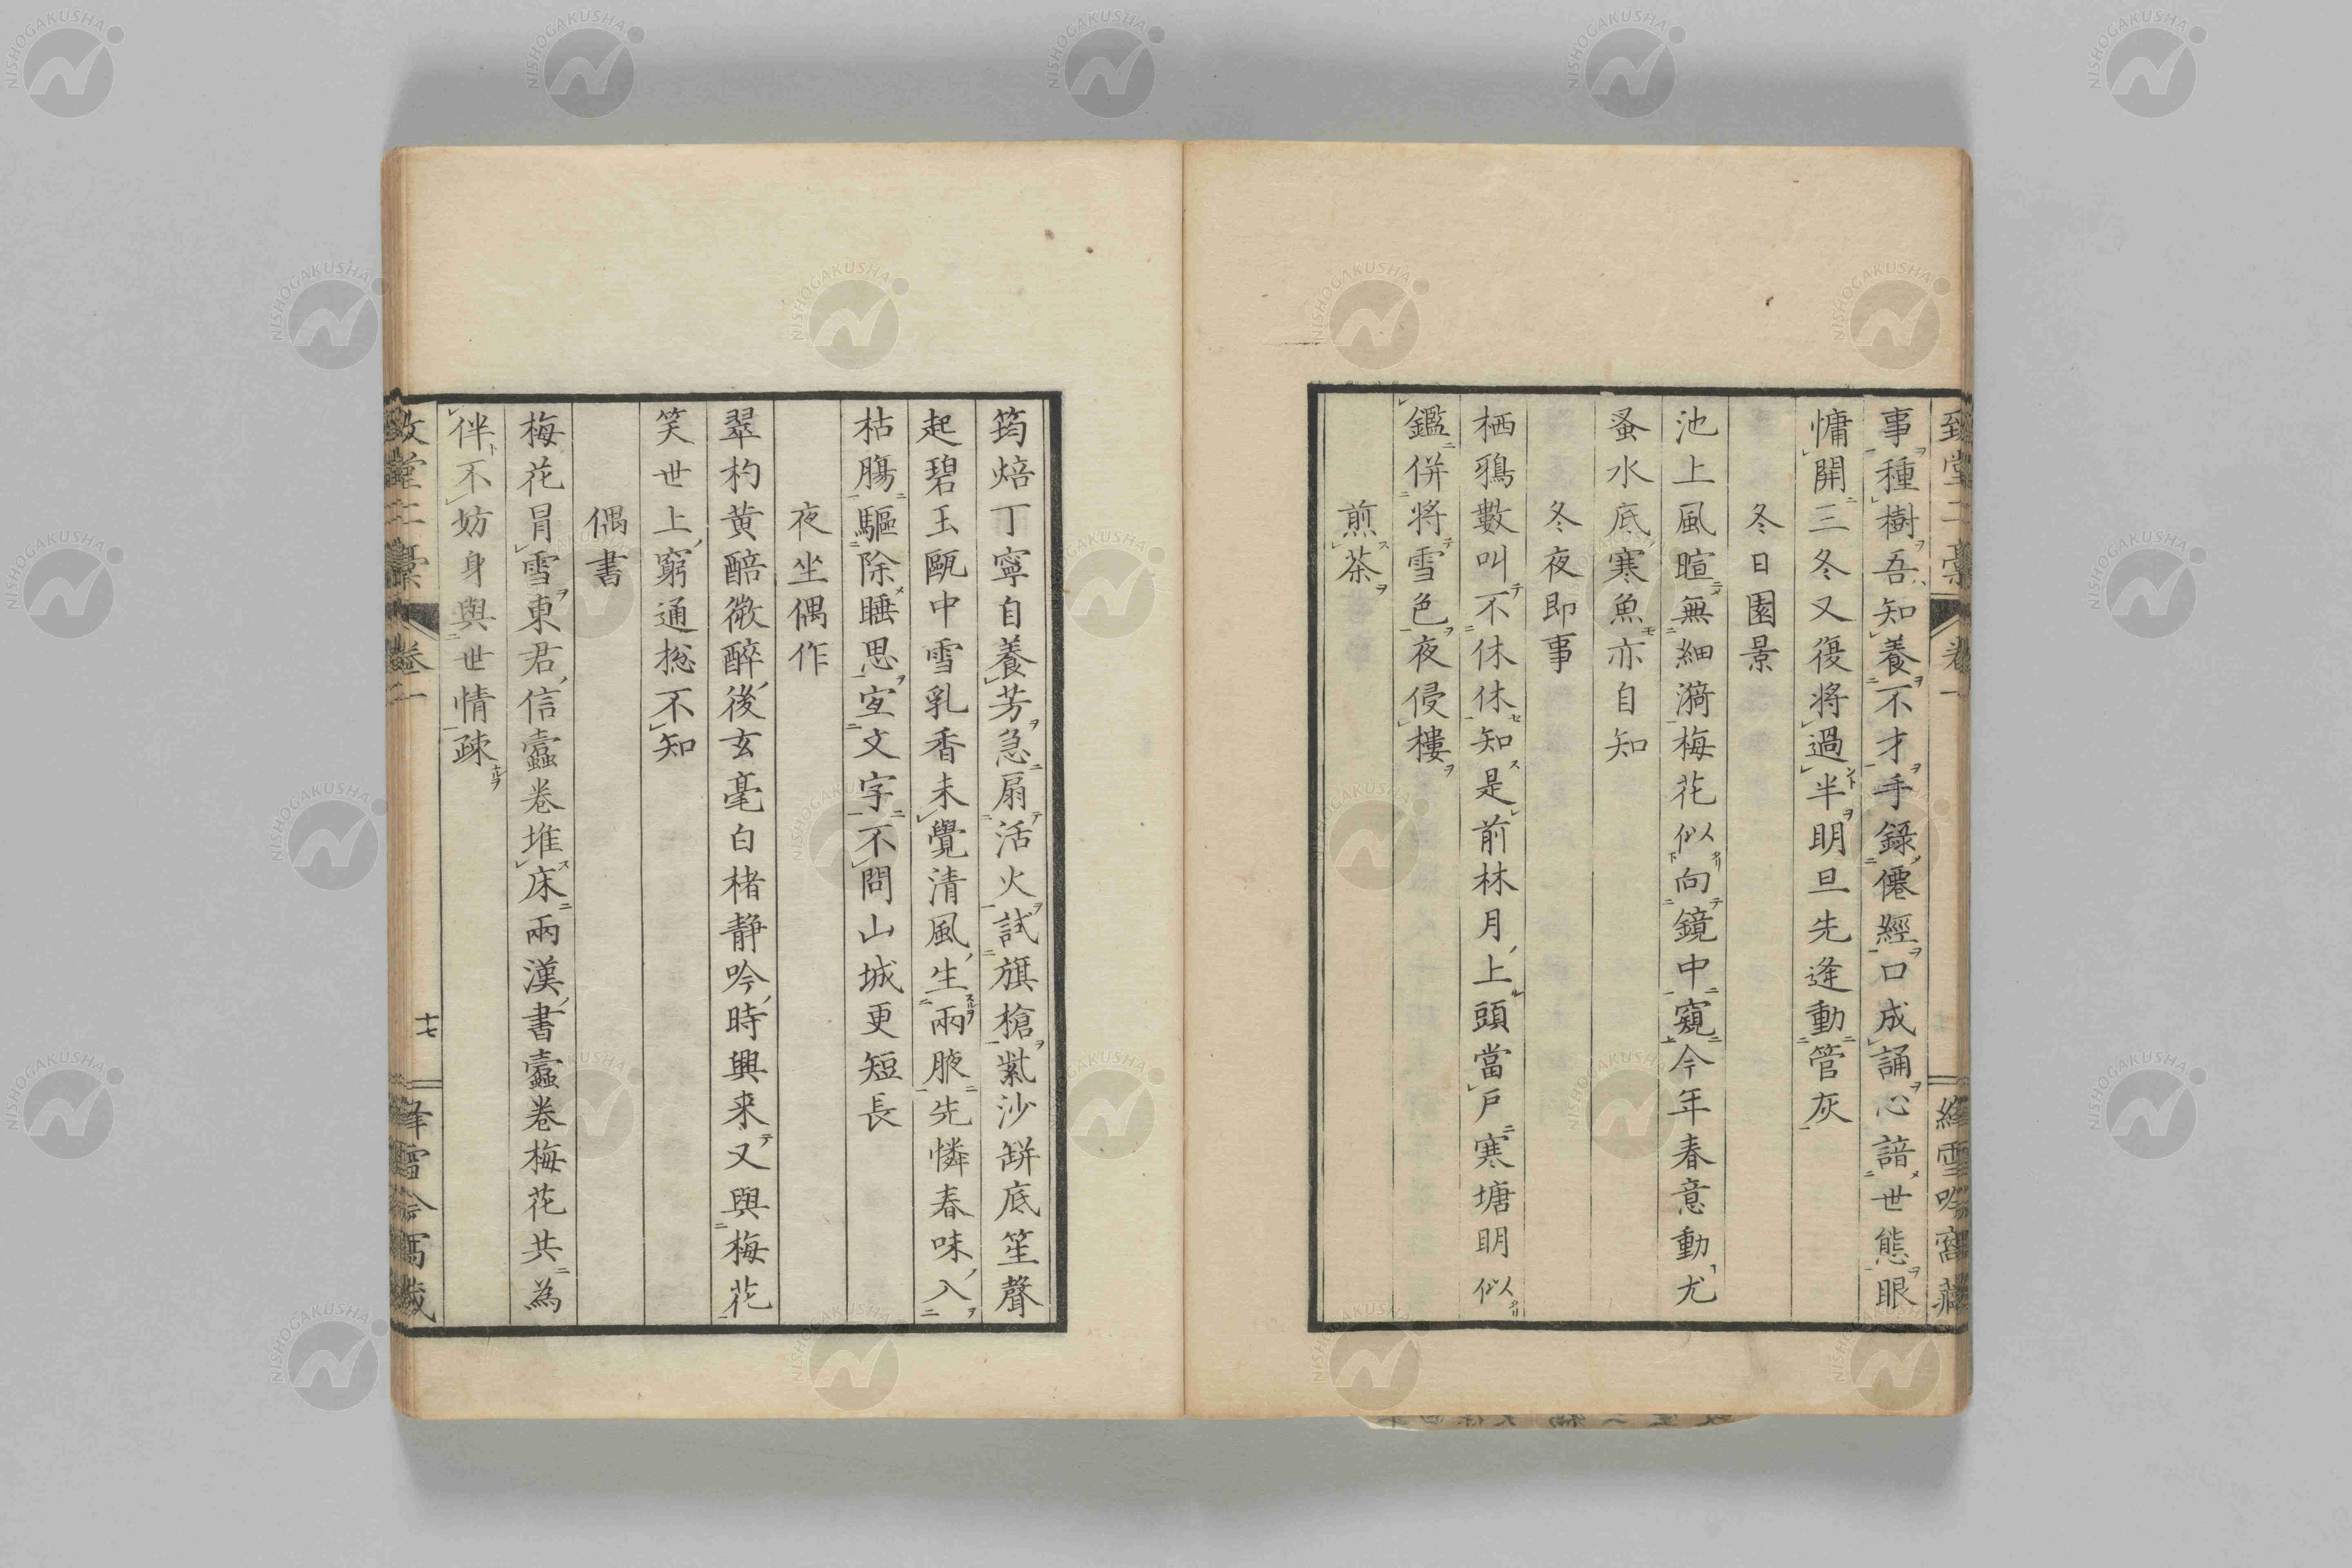 事種樹吾知養不才手錄僊經口成誦心諳世態眼
慵開三冬又復將過半明旦先逢動管灰
冬日園景
池上風暄無細漪梅花似向鏡中窺今年春意動尤
蚤水底寒魚亦自知
冬夜即事
栖鴉數叫不休休知是前林月上頭當戶寒塘明似
鑑併將雪色夜侵樓
煎茶
筠焙丁寧自養芳急扇活火試旗槍紫沙缾底笙聲
起碧玉甌中雪乳香未覺清風生兩腋先憐春味入
枯膓驅除睡思宜文字不問山城更短長
夜坐偶作
翠杓黄醅微醉後玄毫白楮静吟時興来又與梅花
笑世上窮通捴不知
偶書
梅花冐雪東君信蠹卷堆床兩漢書蠹卷梅花共為
伴不妨身與世情疎
卷二
十七
NISHOGAKUSHA